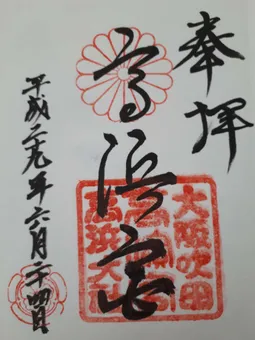 奉拝
高浜宮
平成二十九年六月二十四日
大阪吹田
高浜大社